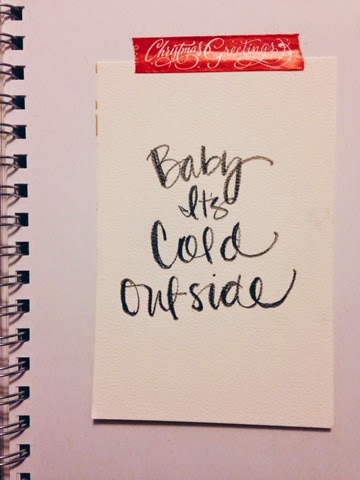 Christmas Greetings
Baby
It's
Cold
Outside